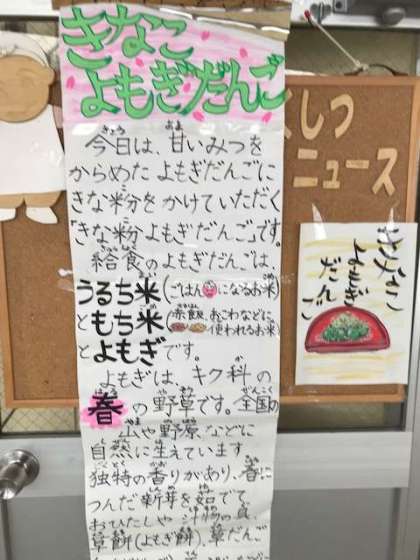 きなこ
よもぎだんご
今日は、甘いみつを
からめた よもぎだんごに
きな粉をかけていただく
「きな粉よもぎだんご」です。
給食のよもぎだんごは、
うるち米(ごはんになるお米)
ともち米(赤飯、おこわなどに、使われるお米)
とよもぎです。
よもぎは、キク科の
春の野草です。全国の
山や野原などに
自然に生えています
独特の香りがあり、春に
つんだ新芽を茹でて
おひたしや汁物の具
草餅(よもぎ餅)、草だんご
しつ
ニュース
きなこ
よもぎ
だんご